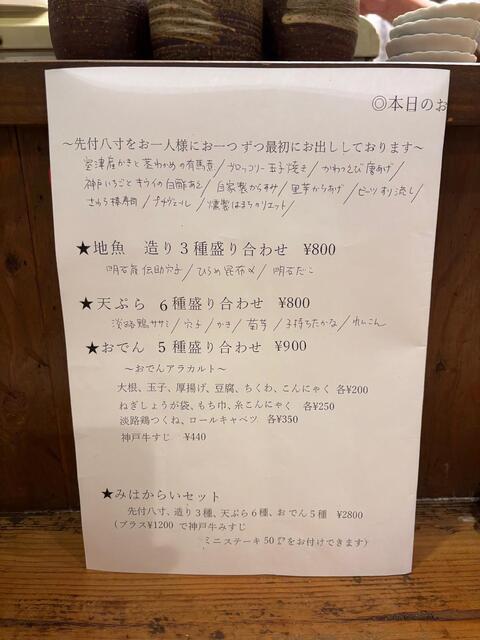 ◎本日のお
～先付八寸をお一人様にお一つずつ最初にお出ししております～
室津産かきと茎わかめの有馬煮/ブロッコリー玉子焼き/かわつえび唐あげ/
神戸いちごとキウイの白酢あえ/自家製からすみ/里芋からあげ/ビーツすり流し/
さわら棒寿司/プチヴェール/燻製はまちのリエット/
★地魚 造り3種盛り合わせ ¥800
明石産伝助穴子/ひらめ昆布〆/明石だこ
★天ぷら 6種盛り合わせ ¥800
淡路鶏ササミ/穴子/かき/菊芋/子持ちたかな/れんこん
★おでん 5種盛り合わせ ¥900
～おでんアラカルト～
大根、玉子、厚揚げ、豆腐、ちくわ、こんにゃく 各¥200
ねぎしょうが袋、もち巾、糸こんにゃく 各¥250
淡路鶏つくね、ロールキャベツ 各¥350
神戸牛すじ ¥440
★みはからいセット
先付八寸、造り3種、天ぷら6種、おでん5種 ¥2800
(プラス¥1200 で神戸牛みすじ
ミニステーキ50㌘をお付けできます)